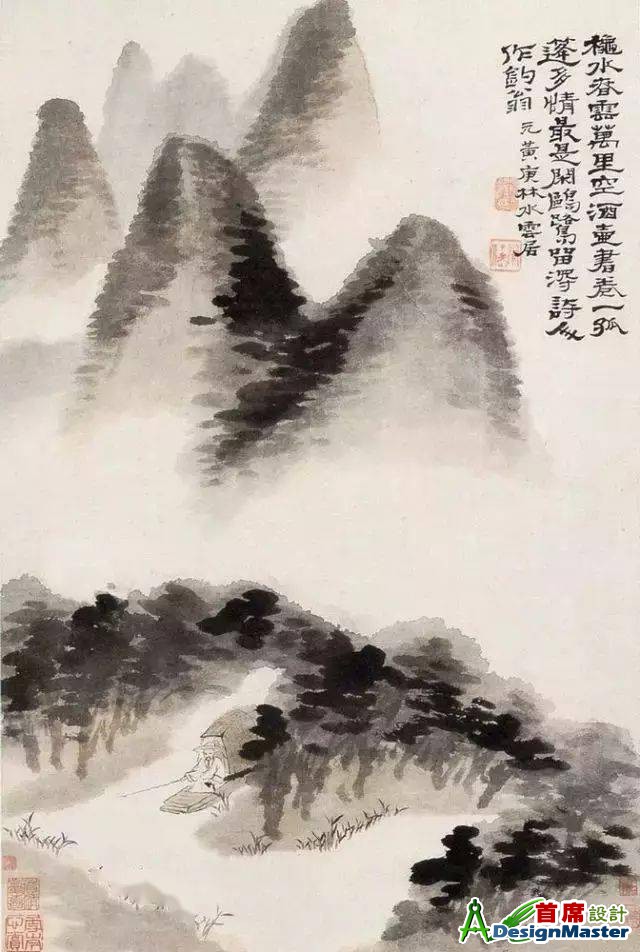 穐水春雲萬里空酒壺書卷一孤
蓬多情最是閑鷗鷺留淂詩人
作釣翁 元黃庚林水雲居
首席設計
ADesignMaster